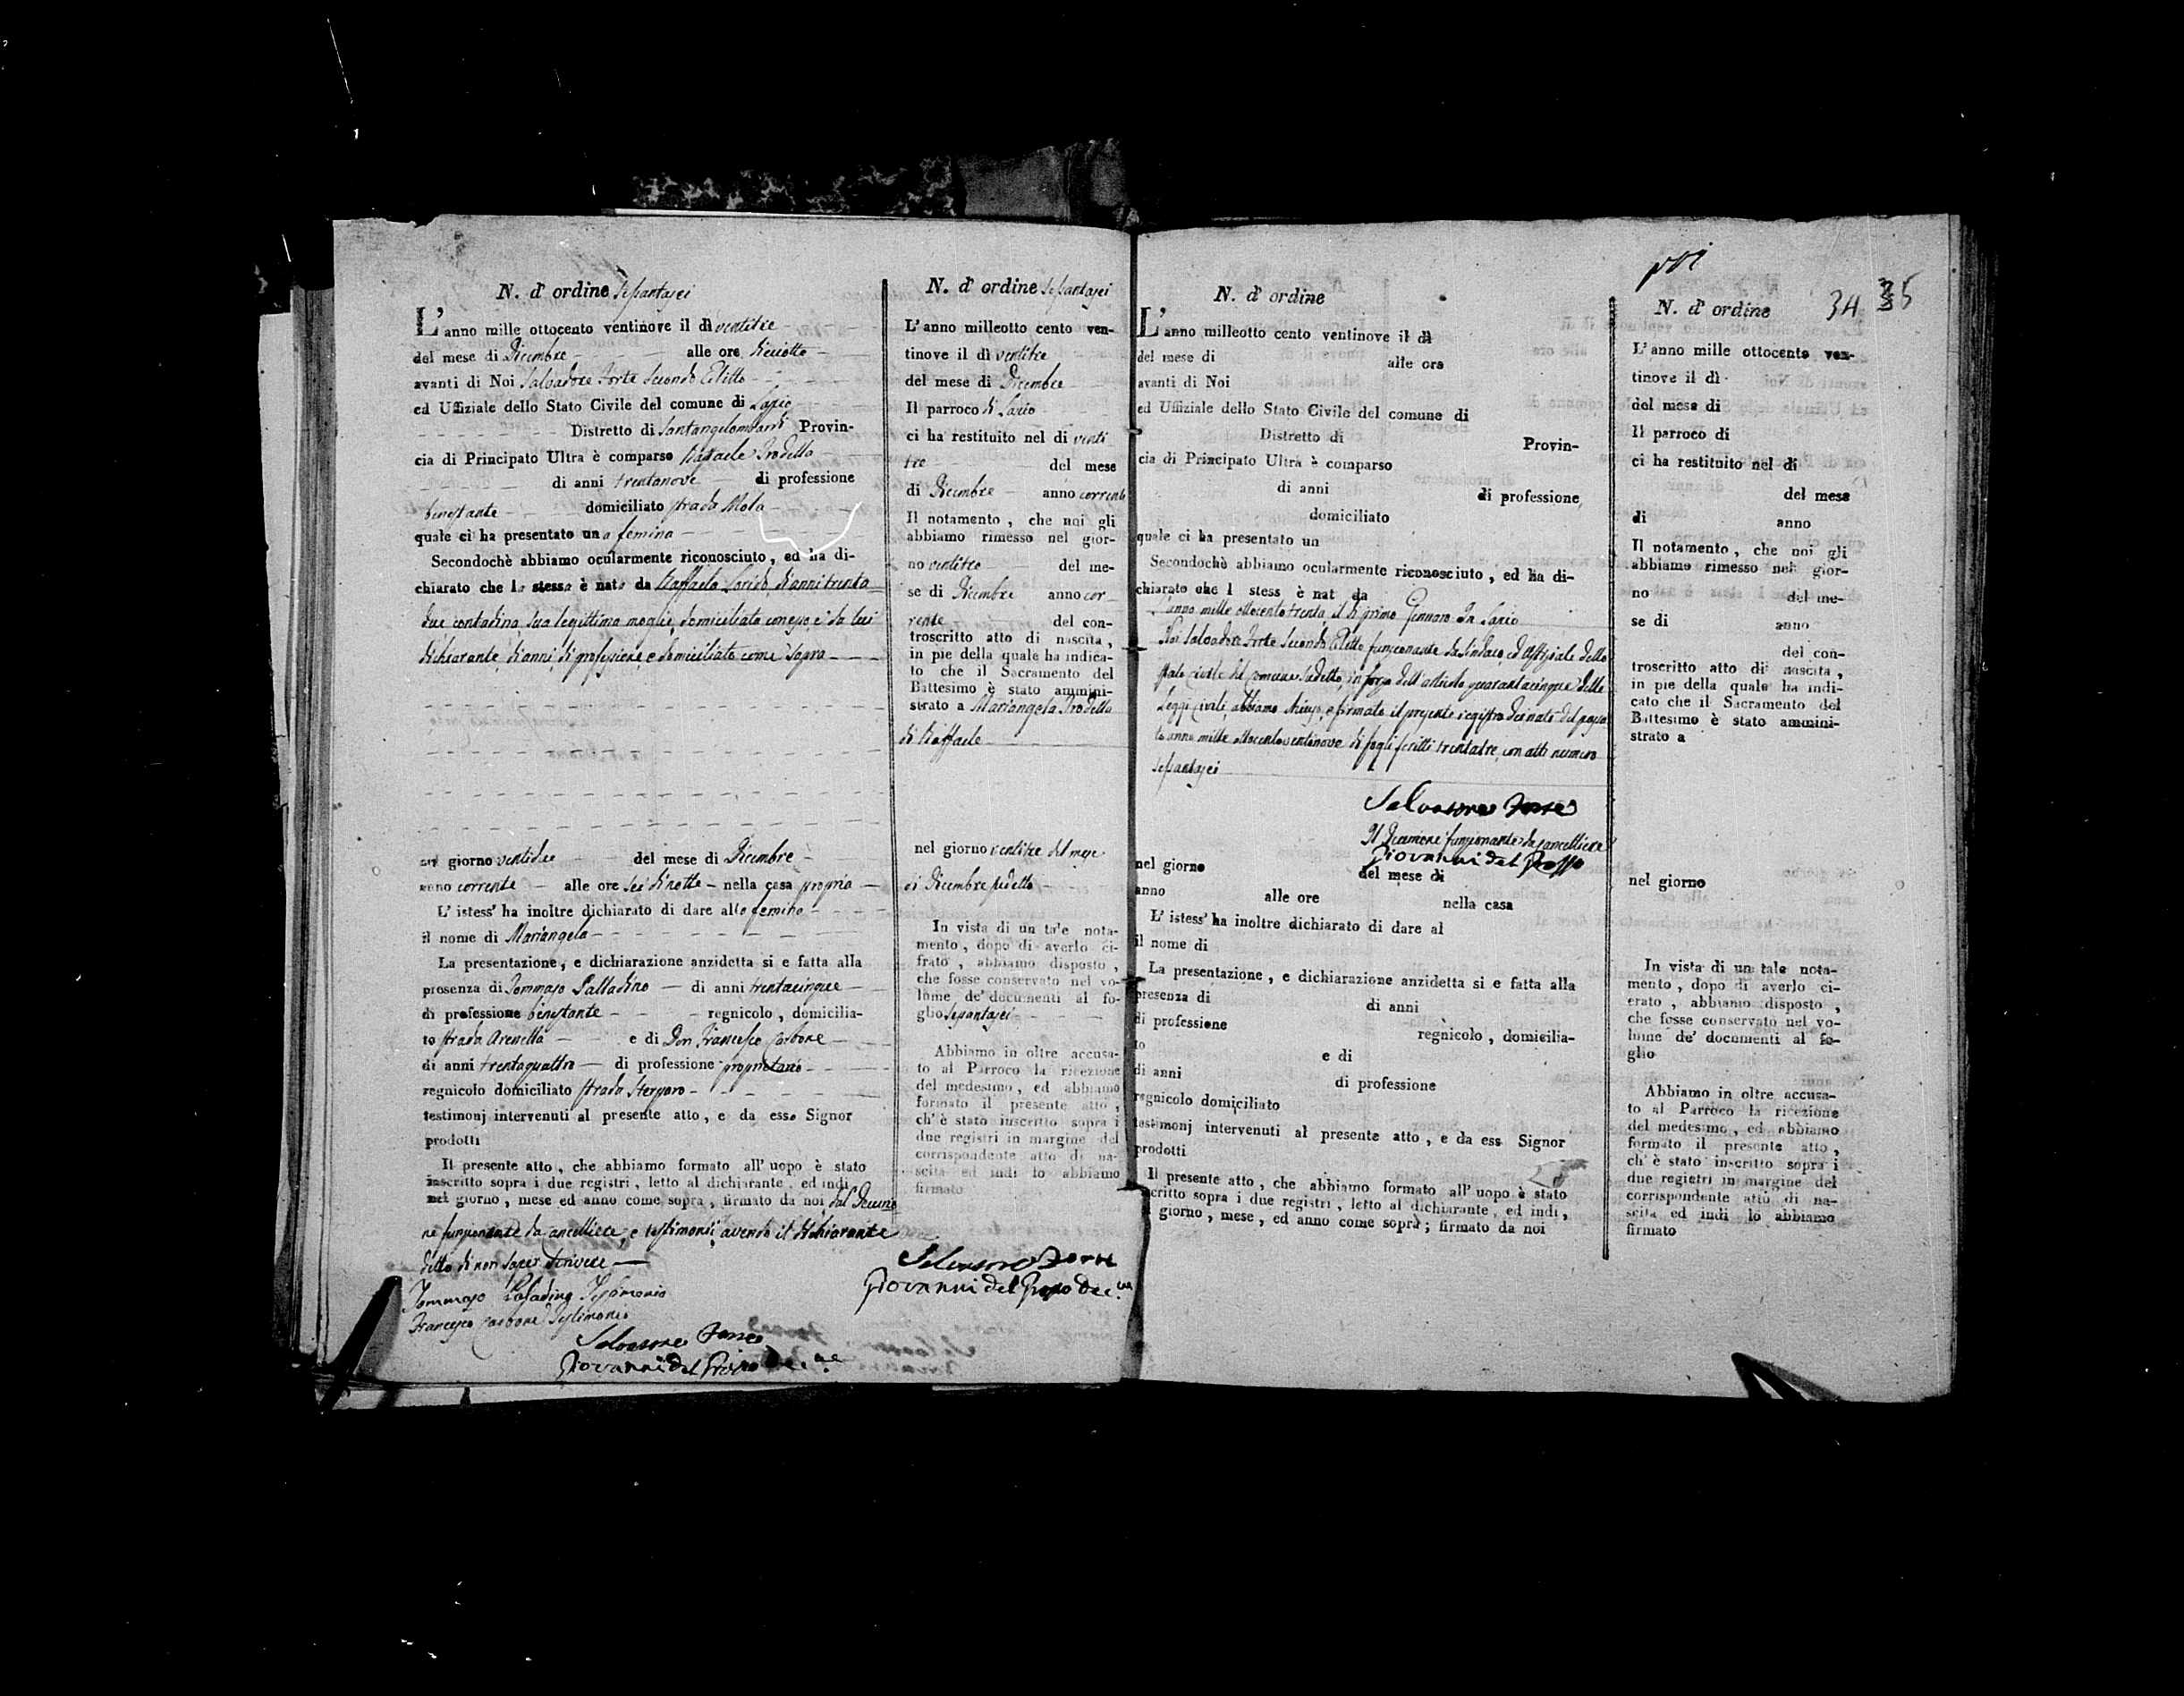 N. d'ordine Sessantasei
L'anno mille ottocento ventinove il dì ventitre
del mese di Dicembre alle ore dieciotto
avanti di Noi Salvadore Forte Secondo Eletto
ed Uffiziale dello Stato Civile del comune di
Distretto di Santangelombardi Provin-
cia di Principato Ultra è comparso Raffaele
di anni trentanove di professione
benestante domiciliato strada Mola
quale ci ha presentato una femina
Secondochè abbiamo ocularmente riconosciuto, ed ha di-
chiarato che la stessa è nata da Raffaela di anni trenta
due contadina sua legittima moglie, domiciliata con esso, e da lui
dichiarante, di anni, di professione, e domiciliato come sopra
nel giorno ventidue del mese di Dicembre
anno corrente alle ore sei di notte nella casa propria
L'istess' ha inoltre dichiarato di dare alla femina
il nome di Mariangela
La presentazione, e dichiarazione anzidetta si e fatta alla
presenza di Tommaso Palladino di anni trentacinque
di professione benestante regnicolo, domicilia-
to strada Arenella e di Don Francesco Carbone
di anni trentaquattro di professione proprietario
regnicolo domiciliato strada
testimonj intervenuti al presente atto, e da esso Signor
prodotti
Il presente atto, che abbiamo formato all'uopo è stato
inscritto sopra i due registri, letto al dichiarante, ed indi
nel giorno, mese ed anno come sopra, firmato da noi, dal Decurio
ne funzionante da cancelliere, e testimonii, avendo il dichiarante
detto di non saper scrivere
Tommaso Palladino Testimonio
Francesco Carbone Testimonio
Salvatore Forte
Giovanni del
N. d'ordine Sessantasei
L'anno milleotto cento ven-
tinove il dì ventitre
del mese di Dicembre
Il parroco di
ci ha restituito nel di venti
tre del mese
di Dicembre anno corrente
Il notamento, che noi gli
abbiamo rimesso nel gior-
no ventitre del me-
se di Dicembre anno cor-
rente del con-
troscritto atto di nascita,
in pie della quale ha indica-
to che il Sacramento del
Battesimo è stato ammini-
strato a Mariangela
di Raffaele
nel giorno ventitre del mese
di Dicembre sudetto
In vista di un tale nota-
mento, dopo di averlo ci-
frato, abbiamo disposto,
che fosse conservato nel vo-
lume de' documenti al fo-
glio Sessantasei
Abbiamo in oltre accusa-
to al Parroco la ricezione
del medesimo, ed abbiamo
formato il presente atto,
ch'è stato inscritto sopra i
due registri in margine del
corrispondente atto di na-
scita ed indi lo abbiamo
firmato
Salvatore Forte
Giovanni del
N. d'ordine
L'anno milleotto cento ventinove il dì
del mese di alle ore
avanti di Noi
ed Uffiziale dello Stato Civile del comune di
Distretto di Provin-
cia di Principato Ultra è comparso
di anni di professione
domiciliato
quale ci ha presentato un
Secondochè abbiamo ocularmente riconosciuto, ed ha di-
chiarato che l stess è nat da
L'anno mille ottocento trenta, il dì primo Gennaro In
Noi Salvadore Forte Secondo Eletto funzionante da Sindaco, ed Uffiziale dello
stato civile del comune sudetto, in forza dell'articolo quarantacinque delle
Leggi civili, abbiamo chiuso, e firmato il presente registro dei nati del passa
to anno mille ottocentoventinove di fogli scritti trentatre, con atti numero
sessantasei
Salvatore Forte
Il Decurione funzionante da cancelliere
Giovanni del
nel giorno del mese di
anno alle ore nella casa
L'istess' ha inoltre dichiarato di dare al
il nome di
La presentazione, e dichiarazione anzidetta si e fatta alla
presenza di di anni
di professione regnicolo, domicilia-
to e di
di anni di professione
regnicolo domiciliato
testimonj intervenuti al presente atto, e da ess Signor
prodotti
Il presente atto, che abbiamo formato all'uopo è stato
scritto sopra i due registri, letto al dichiarante, ed indi,
giorno, mese, ed anno come sopra; firmato da noi
34 35
N. d'ordine
L'anno mille ottocento ven-
tinove il dì
del mese di
Il parroco di
ci ha restituito nel di
del mese
di anno
Il notamento, che noi gli
abbiamo rimesso nel gior-
no del me-
se di anno
del con-
troscritto atto di nascita,
in pie della quale ha indi-
cato che il Sacramento del
Battesimo è stato ammini-
strato a
nel giorno
In vista di un tale nota-
mento, dopo di averlo ci-
erato, abbiamo disposto,
che fosse conservato nel vo-
lume de' documenti al fo-
glio
Abbiamo in oltre accusa-
to al Parroco la ricezione
del medesimo, ed abbiamo
formato il presente atto,
ch'è stato inscritto sopra i
due registri in margine del
corrispondente atto di na-
scita ed indi lo abbiamo
firmato